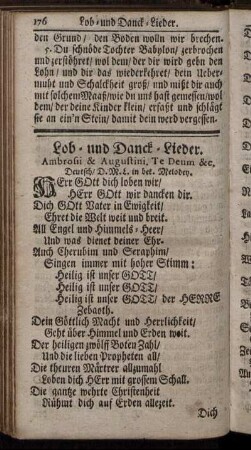 176 Lob- und Danck-Lieder.
den Grund/ den Boden wolln wir brechen.
5. Du schnöde Tochter Babylon/ zerbrochen
und zerstöhret/ wol dem/ der dir wird gebn den
Lohn/ und dir das wiederkehret/ dein Ueber-
muht und Schalckheit groß/ und mißt dir auch
mit solchem Maaß/ wie du uns hast gemessen/ wol
dem/ der deine Kinder klein/ ergreift und schlägt
sie an ein'n Stein/ damit dein werd vergessen.
Lob- und Danck-Lieder.
Ambrosii & Augustini, Te Deum &c.
Deutsch/ D. M. L. in bek. Melodey.
HErr GOtt dich loben wir/
HErr GOtt wir dancken dir.
Dich GOtt Vater in Ewigkeit/
Ehret die Welt weit und breit.
All Engel und Himmels-Heer/
Und was dienet deiner Ehr.
Auch Cherubim und Seraphim/
Singen immer mit hoher Stimm:
Heilig ist unser GOTT/
Heilig ist unser GOTT/
Heilig ist unser GOTT/ der HERRE
Zebaoth.
Dein Göttlich Macht und Herrlichkeit/
Geht über Himmel und Erden weit.
Der heiligen zwölff Boten Zahl/
Und die lieben Propheten all/
Die theuren Märtrer allzumahl
Loben dich HErr mit grossem Schall.
Die gantze wehrte Christenheit
Rühmt dich auf Erden allezeit.
Dich